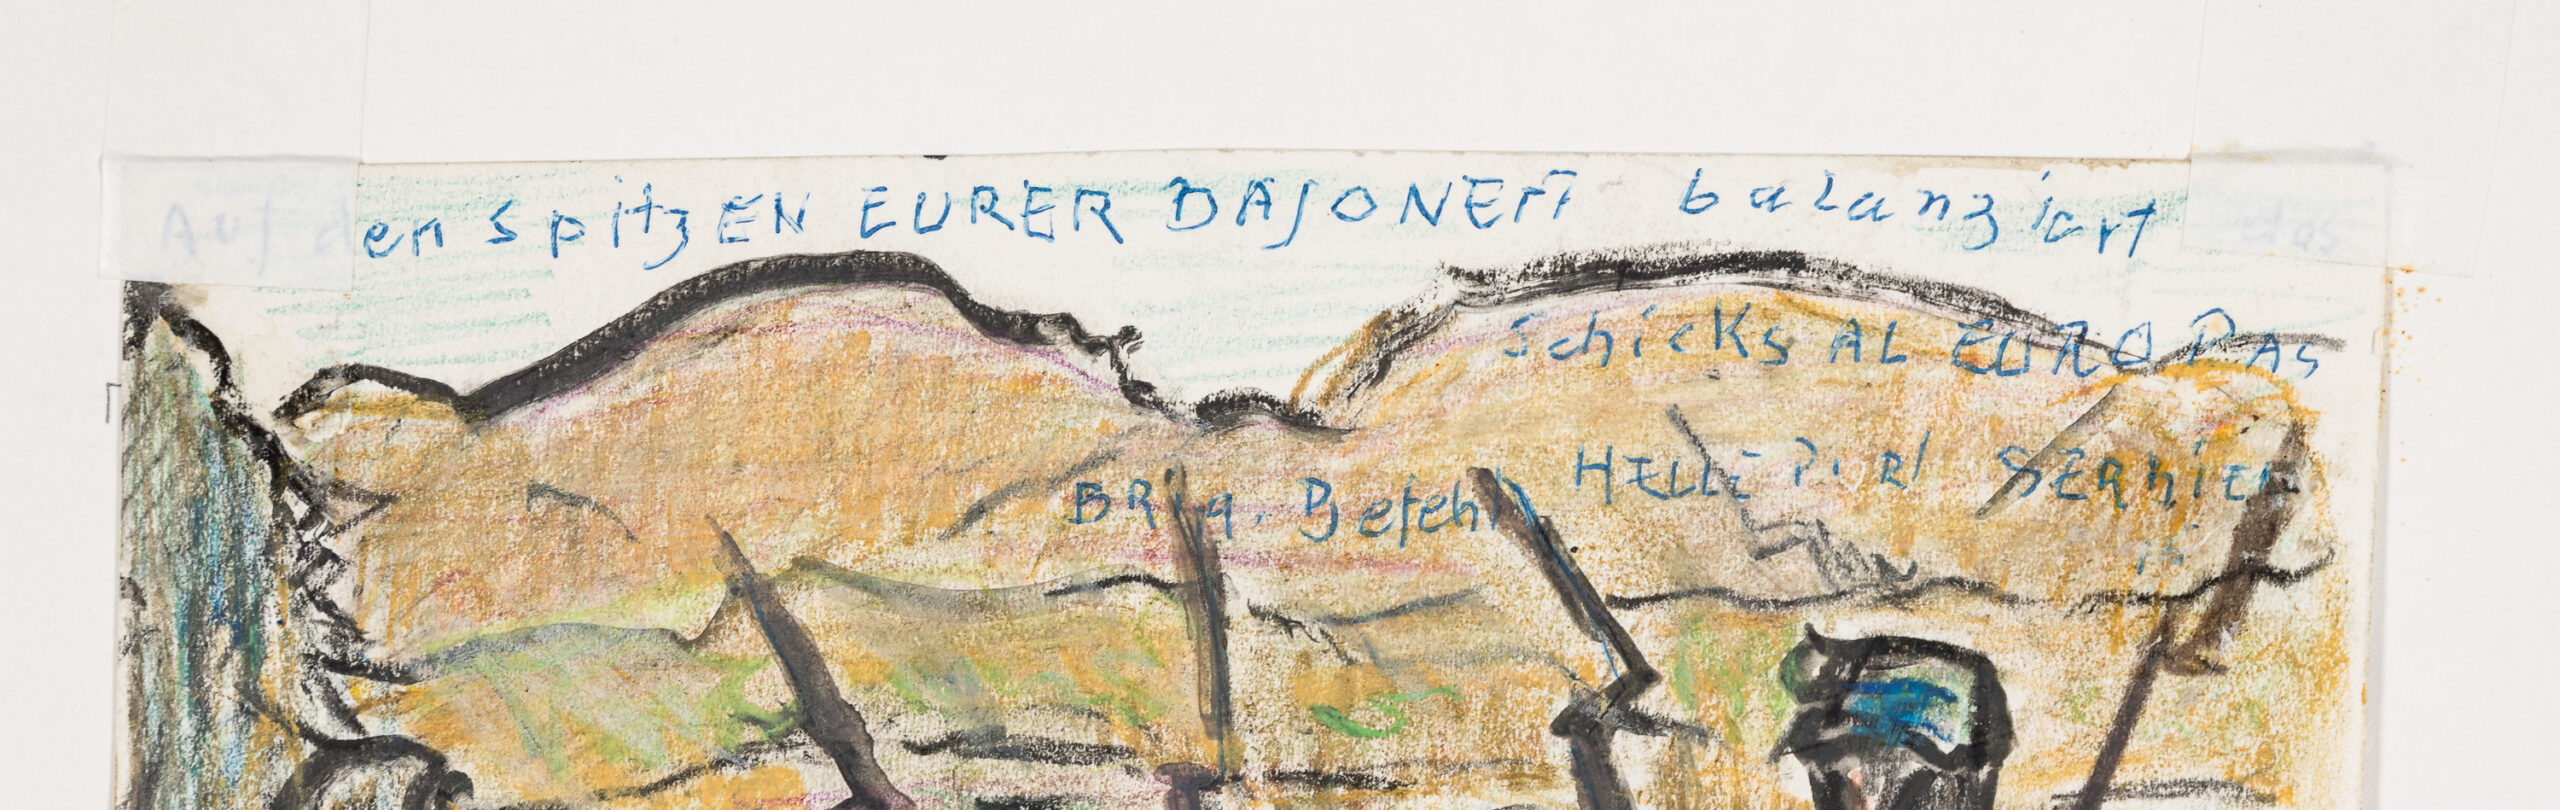 Auf den spitzEN EURER BAJONETT balanziert das
SchicKsAL EUROPAs
BRig. Befehl HELLEPORT SERbiEN
15